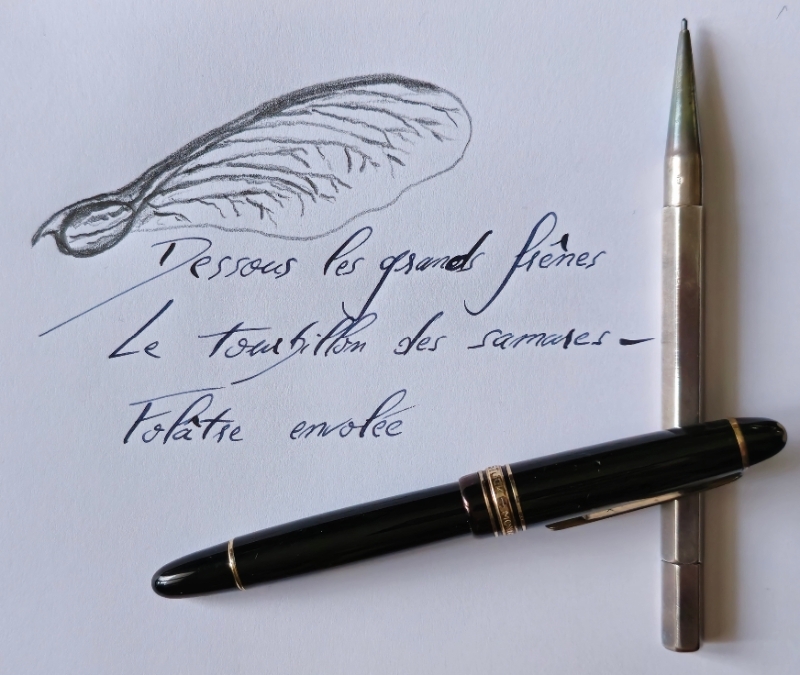 Dessous les grands frênes
Le tourbillon des samares –
Folâtre envolée